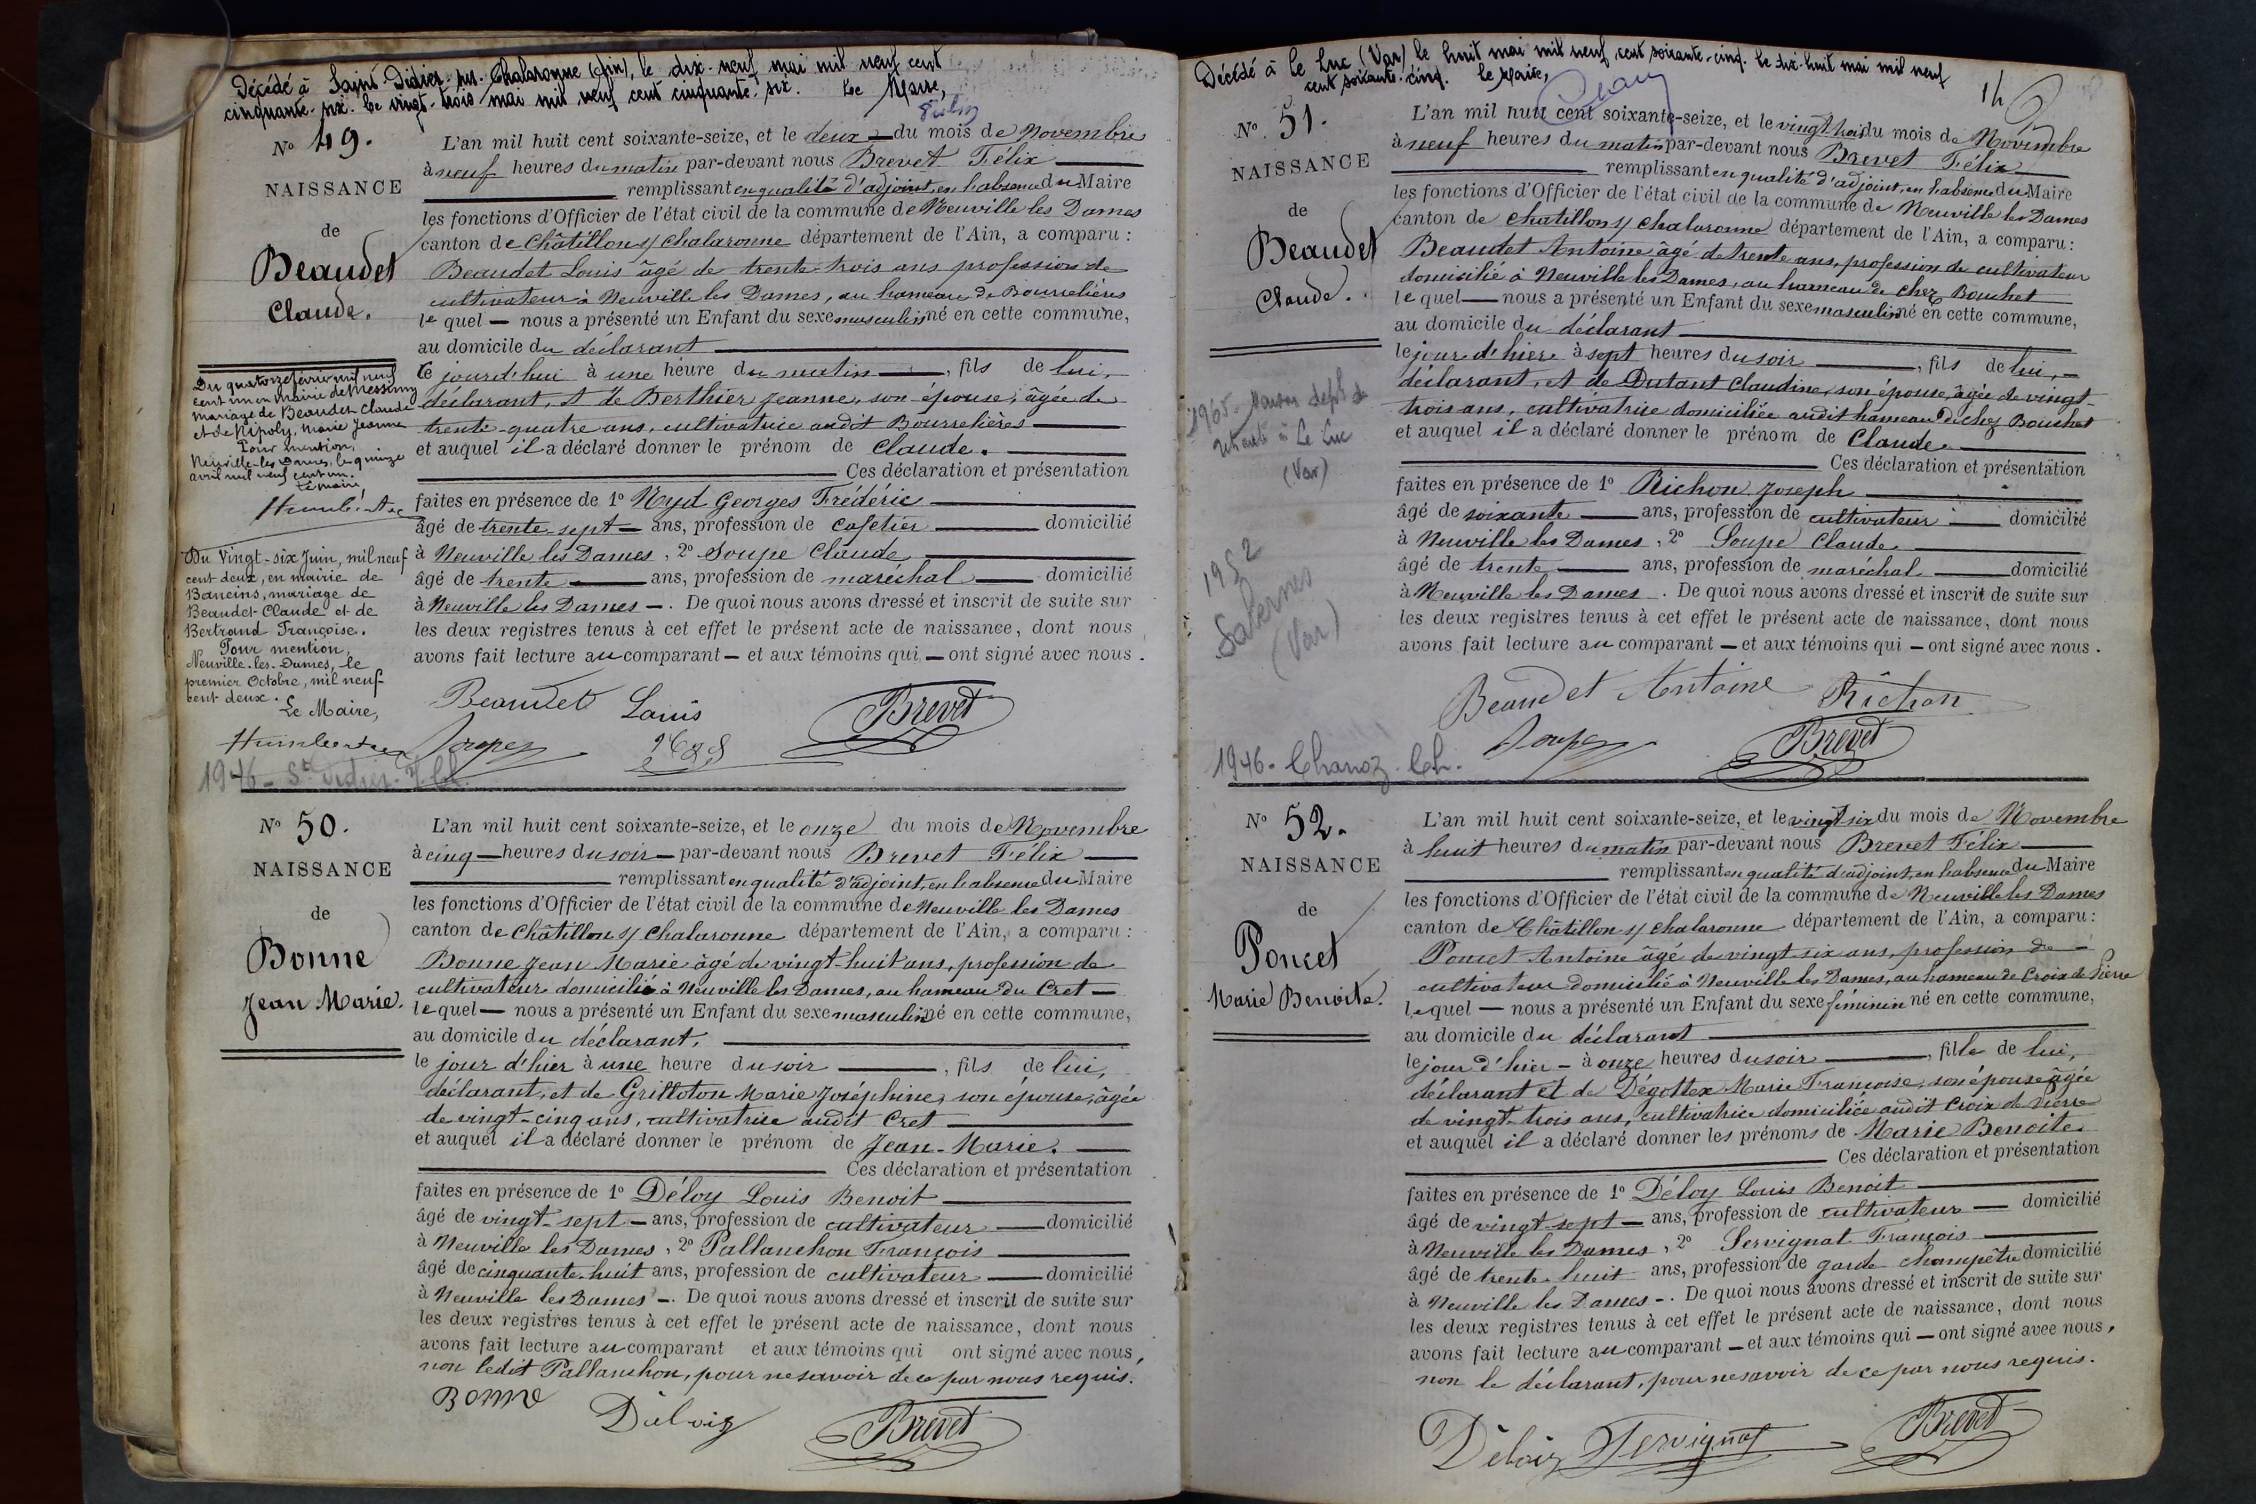 Décédé à Saint-Didier-sur-Chalaronne (Ain), le dix-neuf mai mil neuf cent
cinquante-six. Le vingt-trois mai mil neuf cent cinquante-six. Le Maire,
N° 49.
NAISSANCE
de
Beaudet
Claude.
Du quatorze février mil neuf
cent un en mairie de Messimy
mariage de Beaudet Claude
et de Nipoly, Marie Jeanne
Pour mention,
Neuville-les-Dames, le quinze
avril mil neuf cent un.
Le maire
Du Vingt-six Juin, mil neuf
cent deux, en mairie de
Baneins, mariage de
Beaudet Claude et de
Bertrand Françoise.
Pour mention,
Neuville-les-Dames, le
premier Octobre, mil neuf
cent deux.
Le Maire,
1946 - St Didier s/ Ch.
L'an mil huit cent soixante-seize, et le deux du mois de Novembre
à neuf heures du matin par-devant nous Brevet Félix
remplissant en qualité d'adjoint, en l'absence du Maire
les fonctions d'Officier de l'état civil de la commune de Neuville les Dames
canton de Châtillon s/ Chalaronne département de l'Ain, a comparu :
Beaudet Louis âgé de trente-trois ans profession de
cultivateur à Neuville les Dames, au hameau de Bourrelières
lequel — nous a présenté un Enfant du sexe masculin né en cette commune,
au domicile du déclarant
ce jourd'hui à une heure du matin —, fils de lui,
déclarant, et de Berthier Jeanne, son épouse, âgée de
trente-quatre ans, cultivatrice audit Bourrelières
et auquel il a déclaré donner le prénom de Claude.
Ces déclaration et présentation
faites en présence de 1° Nyd Georges Frédéric
âgé de trente-sept — ans, profession de cafetier — domicilié
à Neuville les Dames, 2° Soupe Claude
âgé de trente — ans, profession de maréchal — domicilié
à Neuville les Dames —. De quoi nous avons dressé et inscrit de suite sur
les deux registres tenus à cet effet le présent acte de naissance, dont nous
avons fait lecture au comparant — et aux témoins qui — ont signé avec nous.
Beaudet Louis Brevet
Soupe
N° 50.
NAISSANCE
de
Bonne
Jean Marie.
L'an mil huit cent soixante-seize, et le onze du mois de Novembre
à cinq — heures du soir — par-devant nous Brevet Félix
remplissant en qualité d'adjoint, en l'absence du Maire
les fonctions d'Officier de l'état civil de la commune de Neuville les Dames
canton de Châtillon s/ Chalaronne département de l'Ain, a comparu :
Bonne Jean Marie âgé de vingt-huit ans, profession de
cultivateur domicilié à Neuville les Dames, au hameau du Cret —
lequel — nous a présenté un Enfant du sexe masculin né en cette commune,
au domicile du déclarant,
le jour d'hier à une heure du soir —, fils de lui,
déclarant, et de Grilloton Marie Joséphine, son épouse, âgée
de vingt-cinq ans, cultivatrice audit Cret
et auquel il a déclaré donner le prénom de Jean-Marie.
Ces déclaration et présentation
faites en présence de 1° Déloy Louis Benoit
âgé de vingt-sept — ans, profession de cultivateur — domicilié
à Neuville les Dames, 2° Pallanchon François
âgé de cinquante-huit ans, profession de cultivateur — domicilié
à Neuville les Dames —. De quoi nous avons dressé et inscrit de suite sur
les deux registres tenus à cet effet le présent acte de naissance, dont nous
avons fait lecture au comparant et aux témoins qui ont signé avec nous,
non ledit Pallanchon, pour ne savoir de ce par nous requis.
Bonne Déloiz Brevet
Décédé à Le Luc (Var) le huit mai mil neuf cent soixante-cinq. Le dix-huit mai mil neuf
cent soixante-cinq. Le Maire,
14
N° 51.
NAISSANCE
de
Beaudet
Claude.
à Le Luc
(Var)
1952
Salernes
(Var)
1946. Chanoz. Ch.
L'an mil huit cent soixante-seize, et le vingt trois du mois de Novembre
à neuf heures du matin par-devant nous Brevet Félix
remplissant en qualité d'adjoint, en l'absence du Maire
les fonctions d'Officier de l'état civil de la commune de Neuville les Dames
canton de Chatillon s/ Chalaronne département de l'Ain, a comparu :
Beaudet Antoine âgé de trente ans, profession de cultivateur
domicilié à Neuville les Dames, au hameau de chez Bouchet
lequel — nous a présenté un Enfant du sexe masculin né en cette commune,
au domicile du déclarant
le jour d'hier à sept heures du soir —, fils de lui, —
déclarant, et de Dutant Claudine, son épouse, âgée de vingt
trois ans, cultivatrice domiciliée audit hameau de chez Bouchet
et auquel il a déclaré donner le prénom de Claude.
Ces déclaration et présentation
faites en présence de 1° Richon Joseph
âgé de soixante — ans, profession de cultivateur — domicilié
à Neuville les Dames, 2° Soupe Claude
âgé de trente — ans, profession de maréchal — domicilié
à Neuville les Dames. De quoi nous avons dressé et inscrit de suite sur
les deux registres tenus à cet effet le présent acte de naissance, dont nous
avons fait lecture au comparant — et aux témoins qui — ont signé avec nous.
Beaudet Antoine Richon
Soupe Brevet
N° 52.
NAISSANCE
de
Poncet
Marie Benoite.
L'an mil huit cent soixante-seize, et le vingt six du mois de Novembre
à huit heures du matin par-devant nous Brevet Félix
remplissant en qualité d'adjoint, en l'absence du Maire
les fonctions d'Officier de l'état civil de la commune de Neuville les Dames
canton de Châtillon s/ Chalaronne département de l'Ain, a comparu :
Poncet Antoine âgé de vingt six ans, profession de —
cultivateur domicilié à Neuville les Dames, au hameau de Croix de Pierre
lequel — nous a présenté un Enfant du sexe féminin né en cette commune,
au domicile du déclarant
le jour d'hier — à onze heures du soir —, fille de lui,
déclarant et de Dégottex Marie Françoise, son épouse âgée
de vingt-trois ans, cultivatrice domiciliée audit Croix de Pierre
et auquel il a déclaré donner les prénoms de Marie Benoite.
Ces déclaration et présentation
faites en présence de 1° Déloy Louis Benoit
âgé de vingt sept — ans, profession de cultivateur — domicilié
à Neuville les Dames, 2° Servignat François
âgé de trente-huit ans, profession de garde champêtre domicilié
à Neuville les Dames —. De quoi nous avons dressé et inscrit de suite sur
les deux registres tenus à cet effet le présent acte de naissance, dont nous
avons fait lecture au comparant — et aux témoins qui — ont signé avec nous,
non le déclarant, pour ne savoir de ce par nous requis.
Déloiz Servignat Brevet